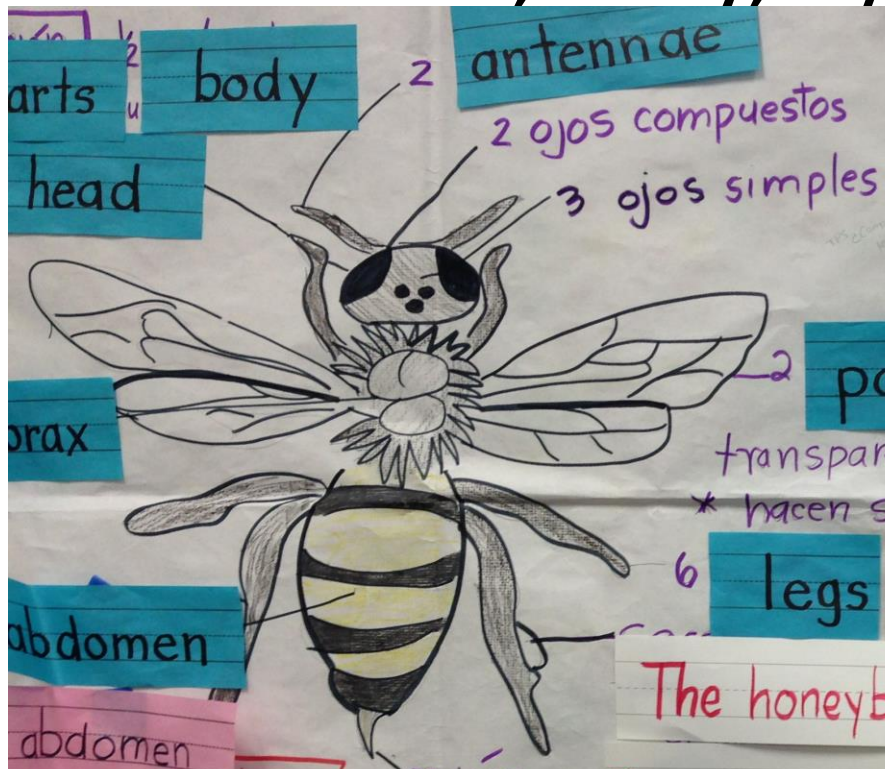 arts
body
2
antennae
2 ojos compuestos
head
3 ojos simples
2
orax
transpar
* hacen s
6
legs
abdomen
The honeyb
abdomen